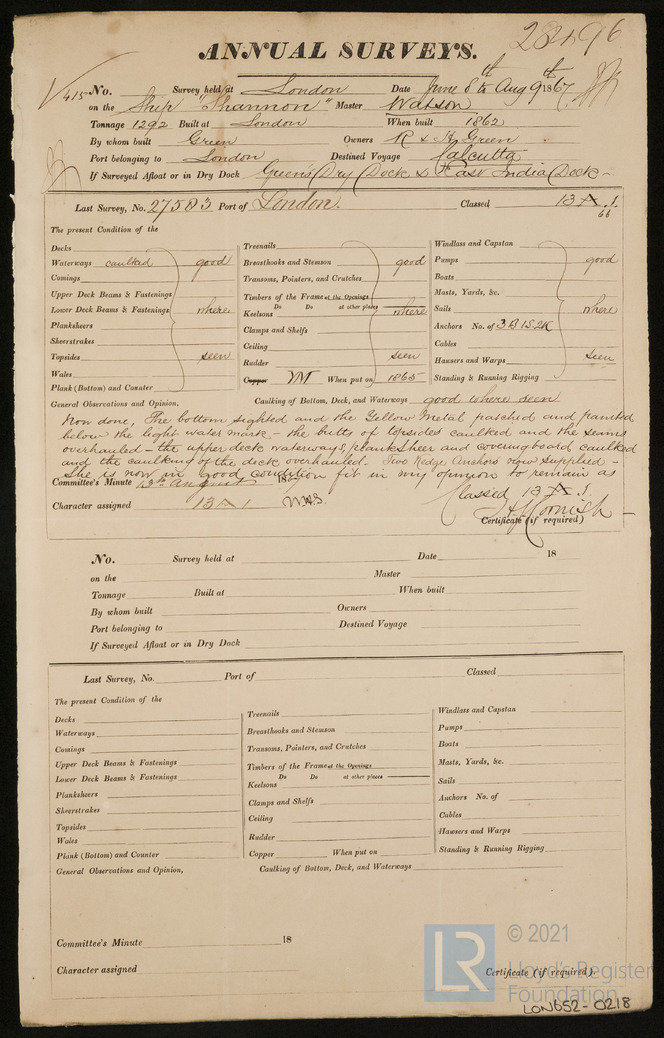 28496
ANNUAL SURVEYS.
415 No. Survey held at London Date June 8th to Aug 9th 1867
on the Ship "Shannon" Master Watson
Tonnage 1292 Built at London When built 1862
By whom built Green Owners R & H Green
Port belonging to London Destined Voyage Calcutta
If Surveyed Afloat or in Dry Dock Green's Dry Dock & East India Dock
Last Survey, No. 27583 Port of London. Classed 13 A .1.
66
The present Condition of the
Decks
Waterways caulked good
Comings
Upper Deck Beams & Fastenings
Lower Deck Beams & Fastenings where
Planksheers
Sheerstrakes
Topsides seen
Wales
Plank (Bottom) and Counter
Treenails
Breasthooks and Stemson good
Transoms, Pointers, and Crutches
Timbers of the Frame at the Openings
Do Do at other places
Keelsons where
Clamps and Shelfs
Ceiling
Rudder seen
Copper YM When put on 1865
Windlass and Capstan
Pumps good
Boats
Masts, Yards, &c.
Sails where
Anchors No. of 3B 1S 2K
Cables
Hawsers and Warps seen
Standing & Running Rigging
General Observations and Opinion, Caulking of Bottom, Deck, and Waterways good where seen
Now done, The bottom sighted and the Yellow Metal patched and painted
below the light water mark - the butts of topsides caulked and the seams
overhauled - the upper deck waterways, planksheer and coveringboard caulked
and the caulking of the deck overhauled. Two Kedge Anchors now supplied -
She is now in good condition fit in my opinion to remain as
Committee's Minute 13th August 18
Classed 13 A .1.
Character assigned 13 A 1
H Cornish
Certificate (if required)
No. Survey held at Date 18
on the Master
Tonnage Built at When built
By whom built Owners
Port belonging to Destined Voyage
If Surveyed Afloat or in Dry Dock
Last Survey, No. Port of Classed
The present Condition of the
Decks
Waterways
Comings
Upper Deck Beams & Fastenings
Lower Deck Beams & Fastenings
Planksheers
Sheerstrakes
Topsides
Wales
Plank (Bottom) and Counter
Treenails
Breasthooks and Stemson
Transoms, Pointers, and Crutches
Timbers of the Frame at the Openings
Do Do at other places
Keelsons
Clamps and Shelfs
Ceiling
Rudder
Copper When put on
Windlass and Capstan
Pumps
Boats
Masts, Yards, &c.
Sails
Anchors No. of
Cables
Hawsers and Warps
Standing & Running Rigging
General Observations and Opinion, Caulking of Bottom, Deck, and Waterways
Committee's Minute 18
Character assigned
Certificate (if required)
LR © 2021
Lloyd's Register
Foundation
LON652-0218